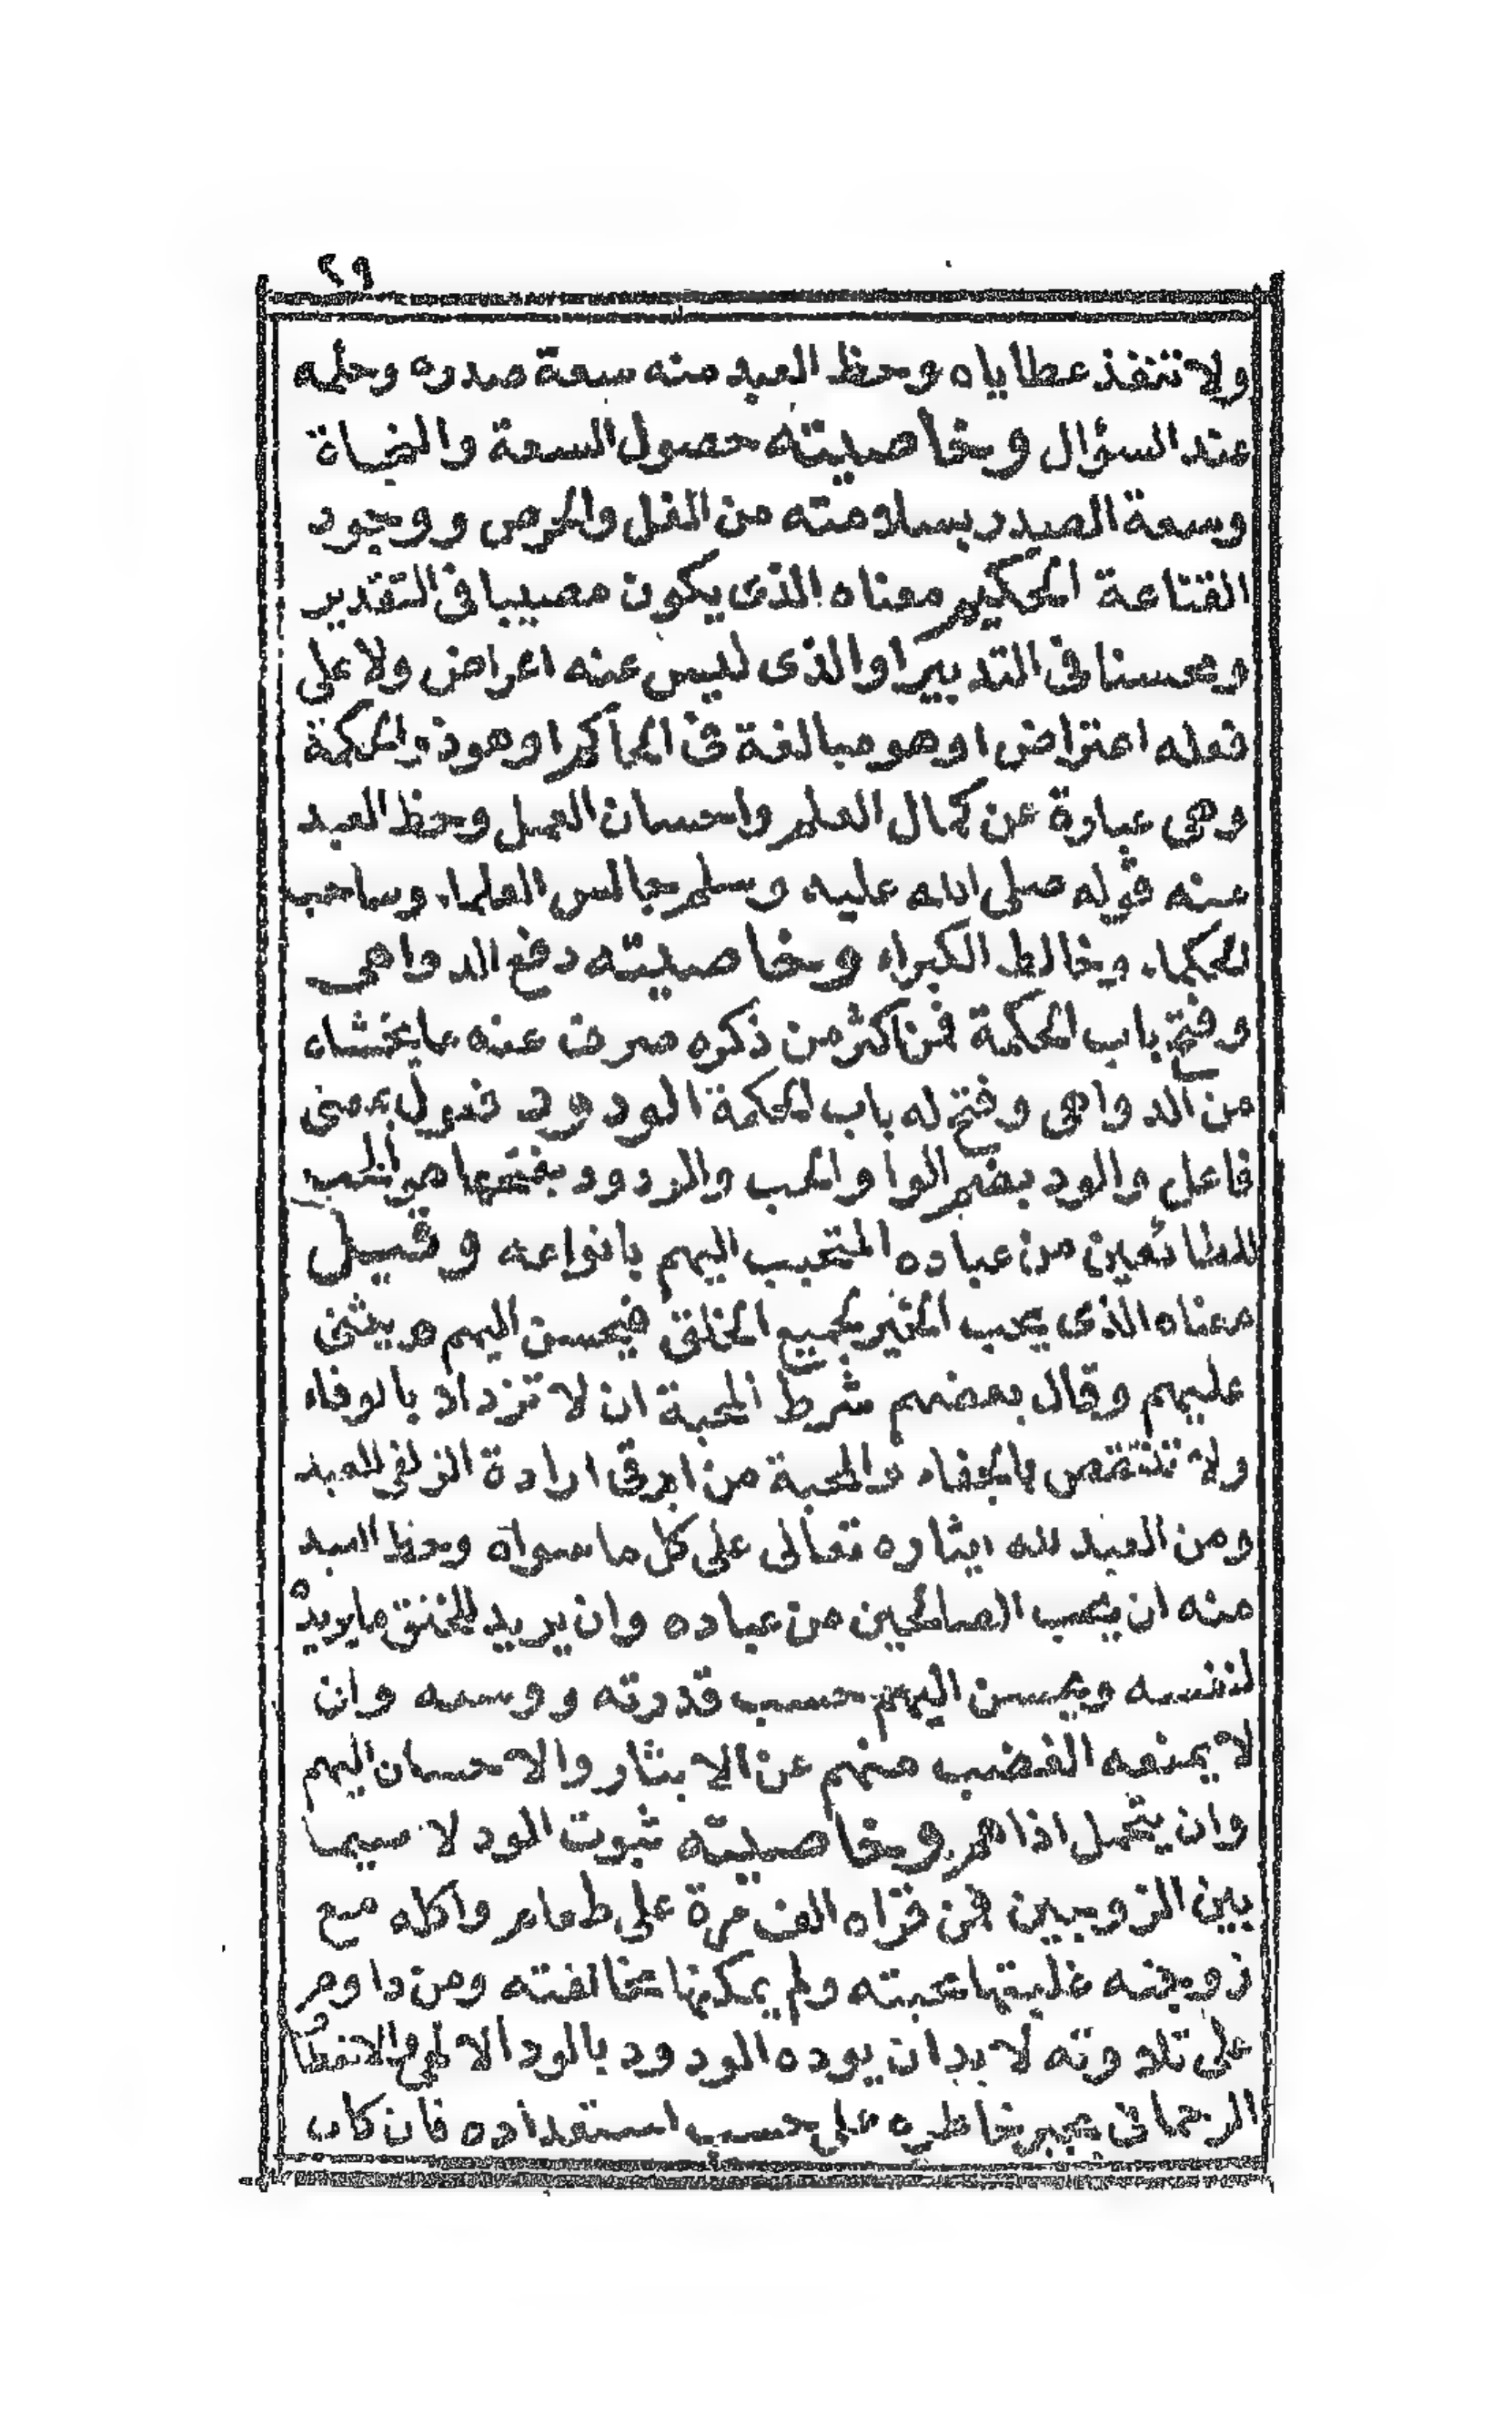 ٢٩
ولا تنفذ عطاياه وحظ العبد منه سعة صدره وحلمه
عند السؤال وخاصيته حصول السعة والنجاة
وسعة الصدر بسلامته من الغل والحرص ووجود
القناعة الحكيم معناه الذى يكون مصيبا فى التقدير
ومحسنا فى التدبير او الذى ليس عنه اعراض ولا على
فعله اعتراض او هو مبالغة فى الحاكم او هو ذو الحكمة
وهى عبارة عن كمال العلم واحسان العمل وحظ العبد
منه قوله صلى الله عليه وسلم جالس العلماء وصاحب
الحكماء وخالط الكبراء وخاصيته دفع الدواهى
وفتح باب الحكمة فمن اكثر من ذكره صرف عنه ما يخشاه
من الدواهى وفتح له باب الحكمة الودود فعول بمعنى
فاعل والود بضم الواو الحب والودود بفتحها هو المحب
للطائعين من عباده المتحبب اليهم بانواعه وقيل
معناه الذى يحب الخير لجميع الخلق فيحسن اليهم ويثنى
عليهم وقال بعضهم شرط المحبة ان لا تزداد بالوفاء
ولا تنتقص بالجفاء والمحبة من الحق ارادة الزلفى للعبد
ومن العبد لله ايثاره تعالى على كل ما سواه وحظ العبد
منه ان يحب الصالحين من عباده وان يريد للخلق ما يريده
لنفسه ويحسن اليهم حسب قدرته ووسعه وان
لا يمنعه الغضب منهم عن الايثار والاحسان اليهم
وان يتحمل اذاهم وخاصيته ثبوت الود لا سيما
بين الزوجين فمن قراه الف مرة على طعام واكله مع
زوجته غلبتها محبته ولم يمكنها مخالفته ومن داوم
على تلاوته لا بد ان يوده الودود بالود الالهى والانعطا
الرحمانى بجبر خاطره على حسب استعداده فان كان